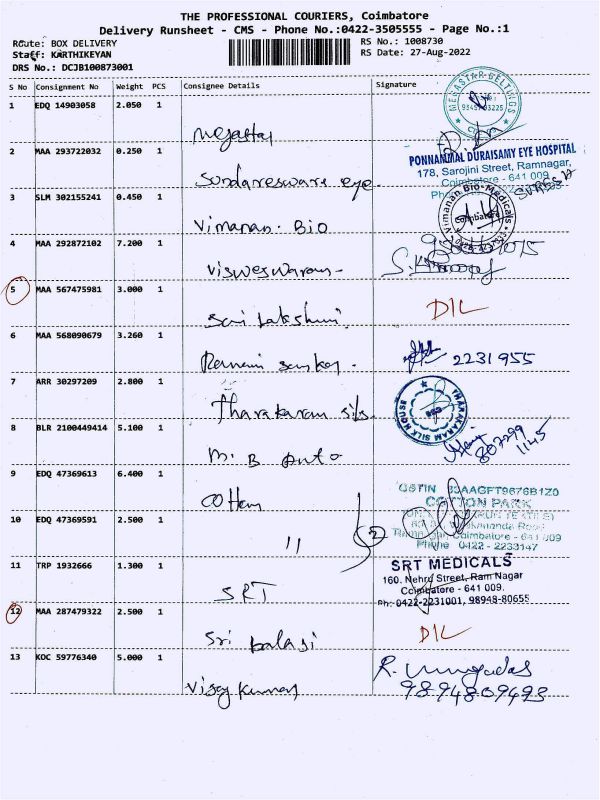 THE PROFESSIONAL COURIERS, Coimbatore
Delivery Runsheet - CMS - Phone No.:0422-3505555 - Page No.:1
Route: BOX DELIVERY
RS No.: 1008730
Staff: KARTHIKEYAN
RS Date: 27-Aug-2022
DRS No.: DCJB100873001
S No Consignment No Weight PCS Consignee Details Signature
1 EDQ 14903058 2.050 1
MEGASTAR BELTINGS
Megastar
2 MAA 293722032 0.250 1
PONNAMMAL DURAISAMY EYE HOSPITAL
178, Sarojini Street, Ramnagar,
Coimbatore - 641 009
Sundareswara eye.
3 SLM 302155241 0.450 1
Vimanan Bio-Medicals
Coimbatore
Vimanan. Bio
4 MAA 292872102 7.200 1
Visweswaran
5 MAA 567475981 3.000 1
DIL
Sai Lakshmi.
6 MAA 568090679 3.260 1
2231955
7 ARR 30297209 2.800 1
THARAKARAM SILK HOUSE
Tharakaram sils.
8 BLR 2100449414 5.100 1
807299
1145
M. B Auto
9 EDQ 47369613 6.400 1
GSTIN 33AAGFT9676B1Z0
COTTON PARK
Cotton
10 EDQ 47369591 2.500 1
Coimbatore - 641 009
Phone 0422 - 2233147
"
2
11 TRP 1932666 1.300 1
SRT MEDICALS
160. Nehru Street, Ram Nagar
Coimbatore - 641 009.
Ph: 0422-2231001, 98948-80655
SRT
12 MAA 287479322 2.500 1
DIL
Sri balaji
13 KOC 59776340 5.000 1
9894809493
Vijay Kumar